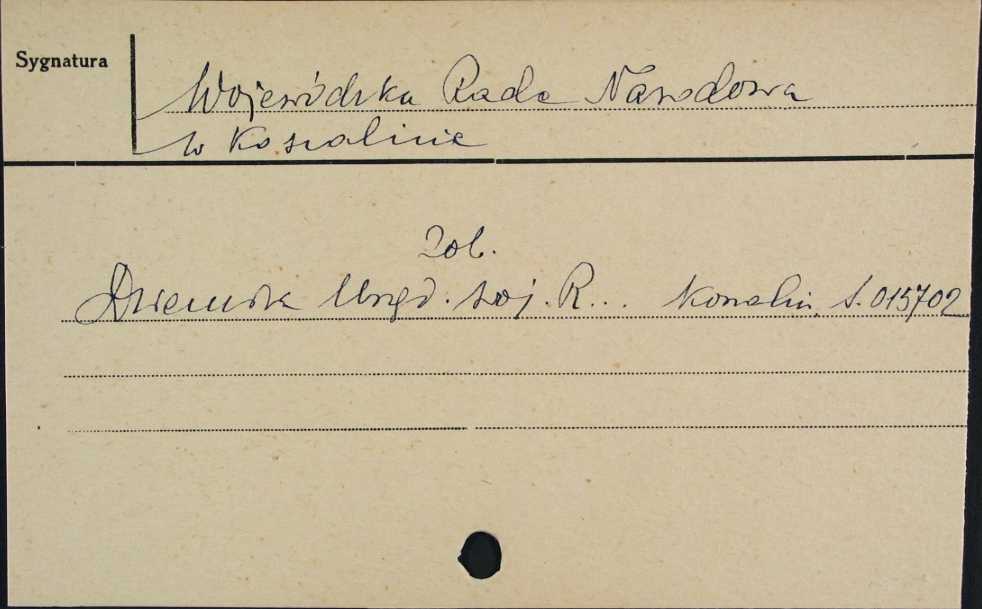 Sygnatura
Wojewódzka Rada Narodowa
w Koszalinie
Zob.
Dziennik Urzęd. Woj. R... Koszalin, S. 015702